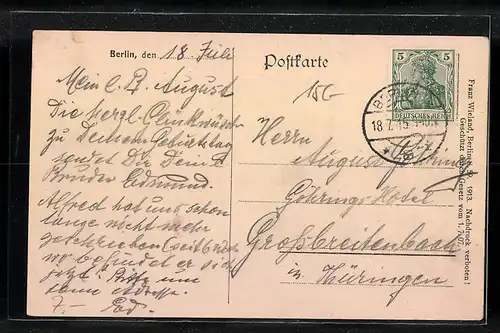 Berlin, den 18. Juli
Mein l. B. August
Die herzl. Glückwünsche
zu Deinem Geburtstag
sendet Dir Dein l.
Bruder Edmund.
Alfred hat uns schon
lange nicht mehr
geschrieben
wo befindet er sich
jetzt? Bitte um
seine Adresse.
Ed.
Postkarte
5 5
DEUTSCHES REICH
BERLIN
18.7.15
Herrn
August
Göhrings Hotel
Großbreitenbach
in Thüringen
Franz Wieland, Berlin 1913. Nachdruck verboten!
Geschützt durch Gesetz vom 1.7.07.